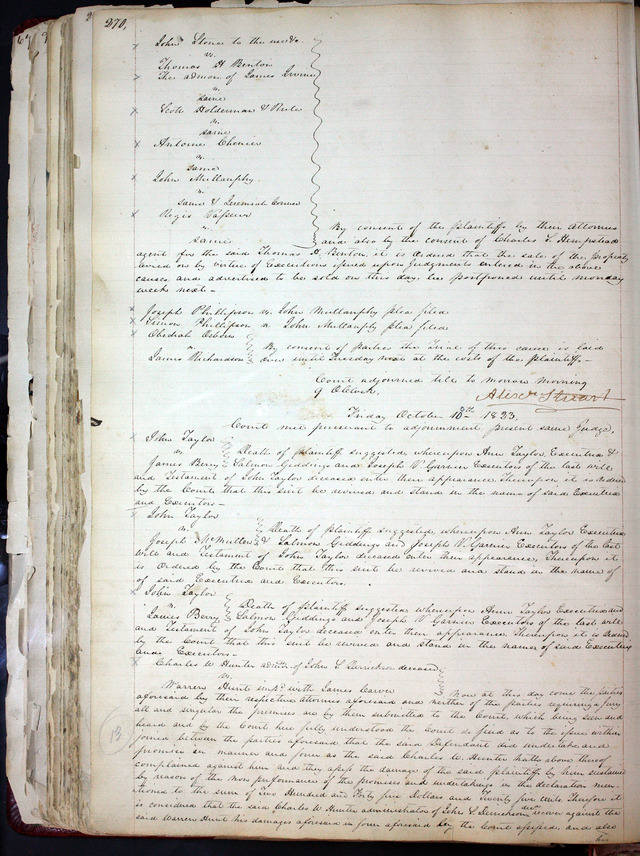 270,
John Stones to the use &c.
vs.
Thomas H Benton
The admors of James Irwin
vs.
same
Scott Holderman & Rule
vs.
same
Antoine Chenier
vs.
same
John Mullanphy
vs.
same & Jeremiah Connor
Regis Vasseur
vs.
same
By consent of the plaintiffs by their Attornies
and also by the consent of Charles S. Hempstead
agent for the said Thomas H. Benton, it is ordered that the sale of the property
levied on by virtue of Executions issued upon judgments entered in the above
causes and advertised to be sold on this day, be postponed until monday
week next -
Joseph Phillipson vs. John Mullanphy plea filed
Simon Phillipson vs John Mullanphy plea filed
Obediah Osborn
vs. By consent of parties the trial of this cause is laid
James Richardson over until Tuesday next at the costs of the plaintiff.-
Court adjourned till to morrow morning
9 OClock.
Alexr Stuart
Friday October 10th 1823.
Court met pursuant to adjournment present same Judge.
John Taylor
vs. Death of plaintiff suggested whereupon Ann Taylor Executrix &
James Berry Salmon Giddings and Joseph V. Garnier Executors of the last will
and Testament of John Taylor deceased enter their appearance Thereupon it is ordered
by the Court that this suit be revived and stand in the name of said Executrix
and Executors -
John Taylor
vs Death of plaintiff suggested, whereupon Ann Taylor Executrix
Joseph McMullen & Salmon Giddings and Joseph V. Garnier Executors of the last
will and Testament of John Taylor deceased enter their appearance, Thereupon it
is ordered by the Court that this suit be revived and stand in the name of
of said Executrix and Executors.
John Taylor
vs. Death of plaintiff suggested whereupon Ann Taylor Executrix and
James Berry Salmon Giddings and Joseph V Garnier Executors of the last will
and Testament of John Taylor deceased enter their appearance Thereupon, it is ordered
by the Court that this suit be revived and stand in the names of said Executrix
and Executors -
Charles W Hunter admtor of John S. deceased
vs.
Warren Hunt impd with James Carver Now at this day come the parties
aforesaid by their respective attornies aforesaid and neither of the parties requiring a jury
all and singular the premises are by them submitted to the Court, which being seen and
heard and by the Court here fully understood the Court do find as to the issue within
joined between the parties aforesaid that the said Defendant did undertake and
promise in manner and form as the said Charles W. Hunter hath above thereof
complained against him and they assess the damage of the said plaintiff by him sustained
by reason of the non performance of the promises and undertakings in the declaration men-
tioned to the sum of Two Hundred and Forty five Dollars and Twenty five cents Therefore it
is considered that the said Charles W Hunter administrator of John S. decd. recover against the
said Warren Hunt his damages aforesaid in form aforesaid by the Court assessed, and also
his
13